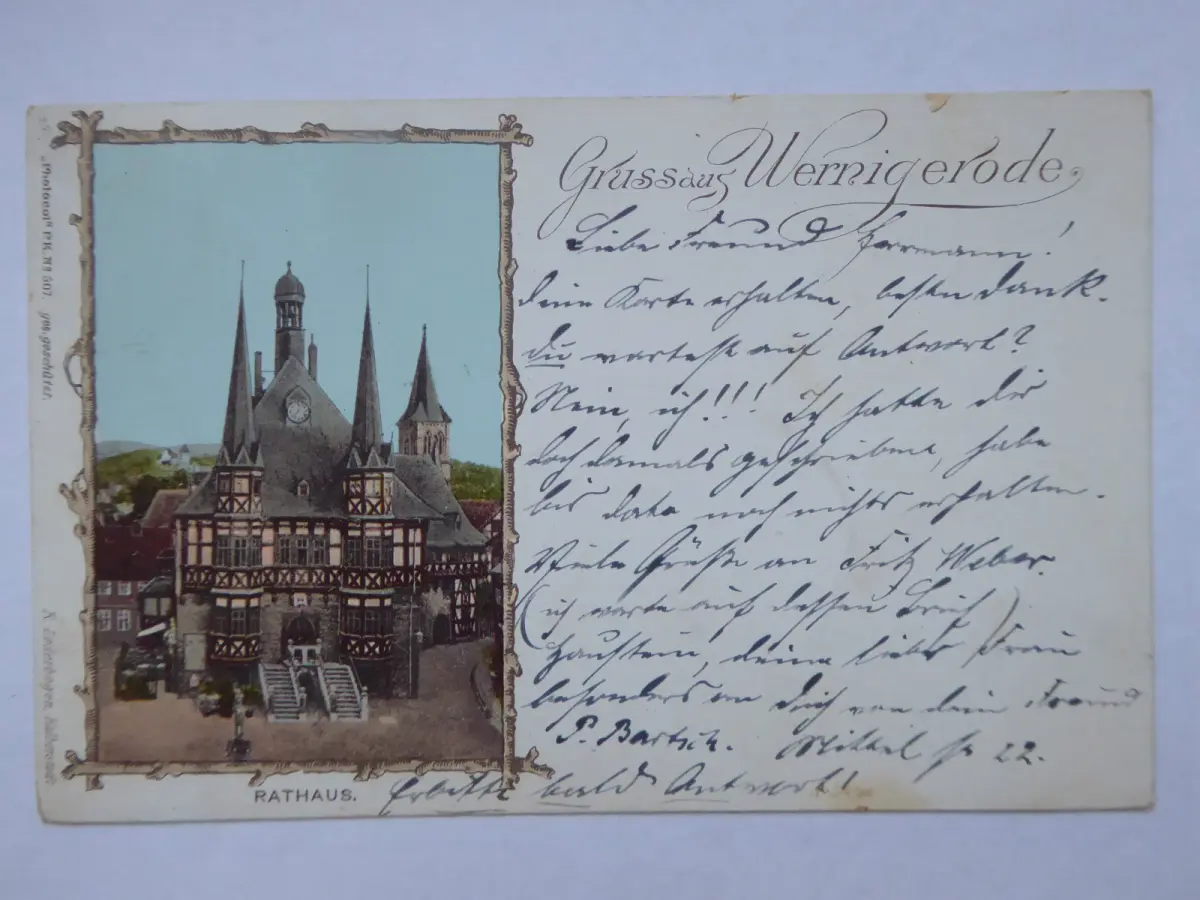 Gruss aus Wernigerode
Liebe Freund Herrmann!
Deine Karte erhalten, besten Dank.
Du wartest auf Antwort?
Nein, ich!!! Ich hatte dir
doch damals geschrieben, habe
bis dato noch nichts erhalten.
Viele Grüße an Fritz Weber.
(ich warte auf dessen Brief)
Haustein, deine liebe Frau
besonders an Dich von dein Freund
P. Bartsch. Mittel 22.
Erbitte bald Antwort!
RATHAUS.
"Photocol" P.K. No 507. ges. geschützt.